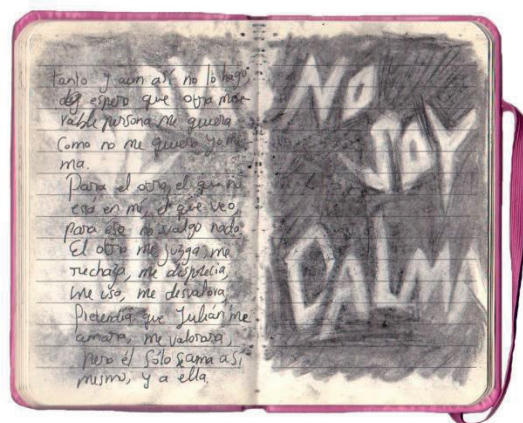 tanto y aun así no lo hago
espero que otra mise-
rable persona me quiera
como no me quiero yo mis-
ma.
Para el otro, el que no
está en mí, el que veo,
para ese no valgo nada.
El otro me juzga, me
rechaza, me desprecia,
me usa, me desvalora,
Pretendía que Julián me
amara, me valorara,
pero él sólo se ama a sí
mismo, y a ella.
NO
SOY
DALMA